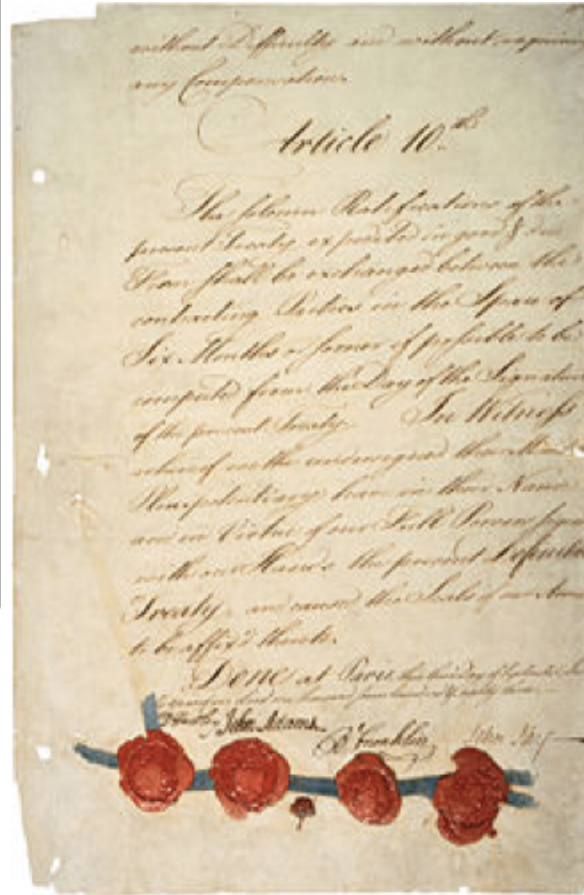 without Difficulty and without requirin
any Compensation.
Article 10.th
The solemn Ratifications of the
present Treaty expedited in good & due
Form shall be exchanged between the
contracting Parties in the Space of
Six Months or sooner if possible to be
computed from the Day of the Signature
of the present Treaty. In Witness
whereof we the undersigned their Min
Plenipotentiary have in their Name
and in Virtue of our Full Powers
with our Hands the present Definitiv
Treaty, and caused the Seals of our Arms
to be affix'd thereto.
Done at Paris, this third day of September
John Adams
B Franklin
John Jay